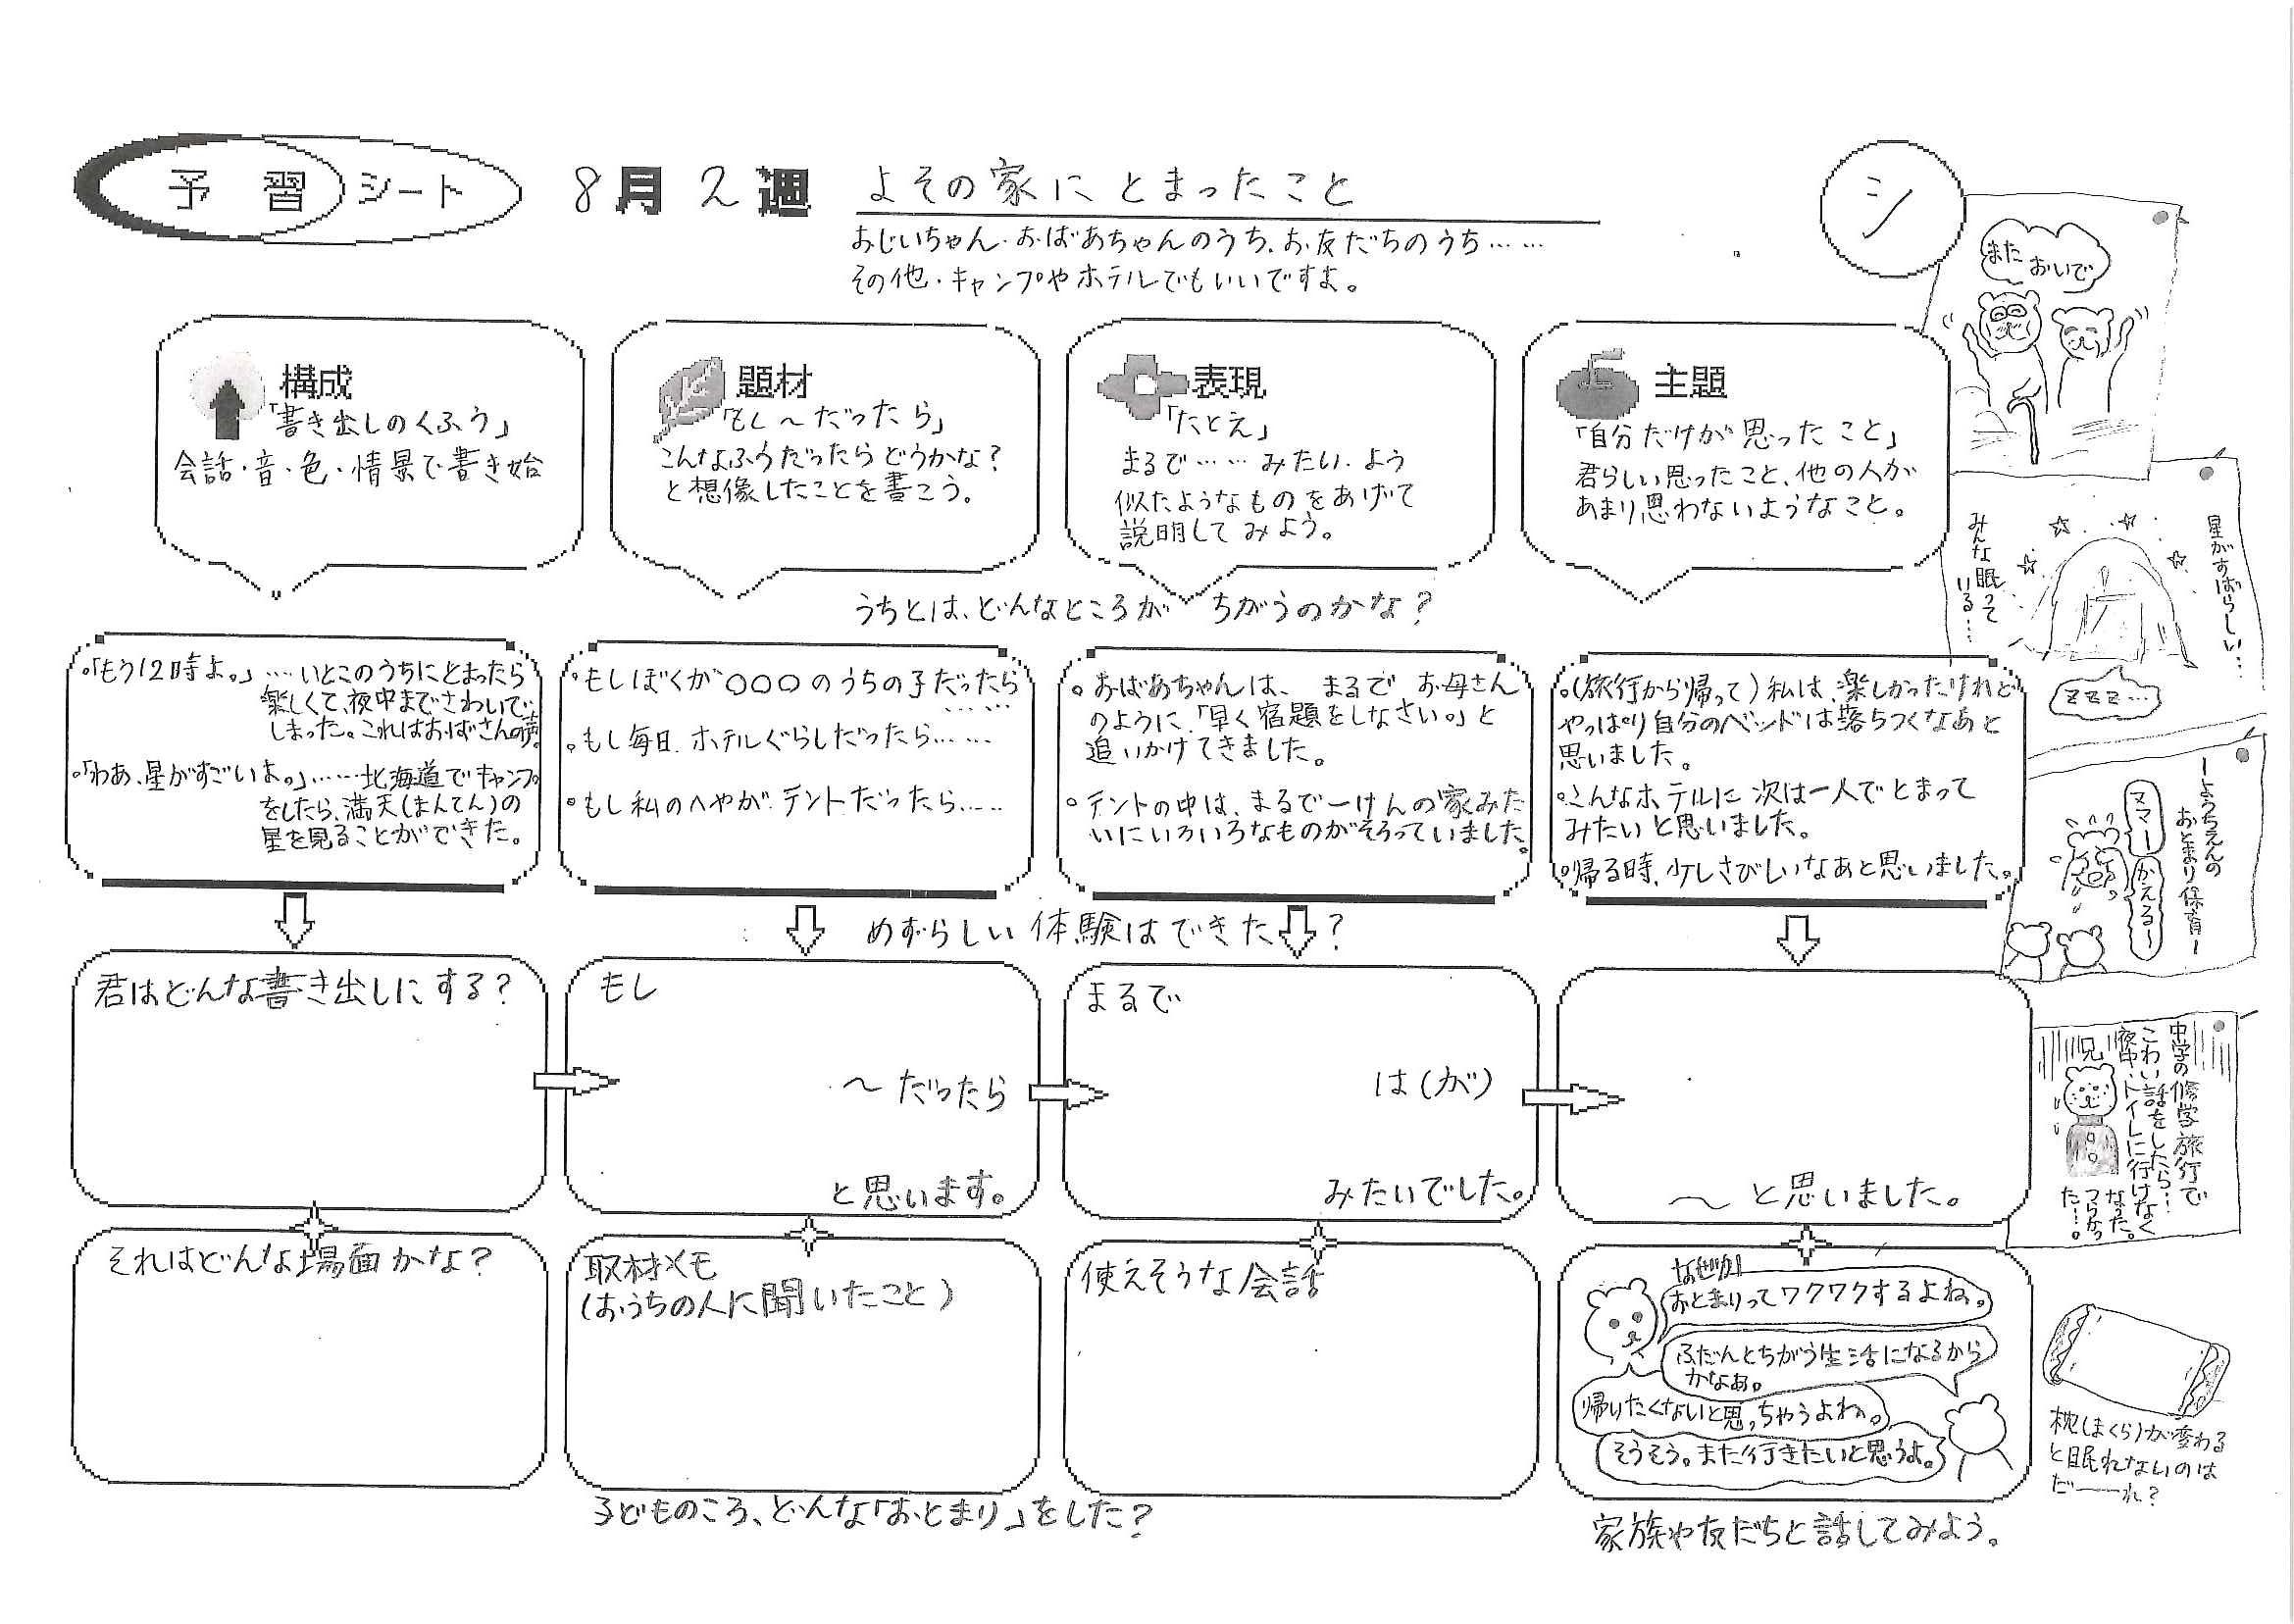 予習シート 8月2週 よその家にとまったこと
シ
おじいちゃん・おばあちゃんのうち、お友だちのうち……
その他・キャンプやホテルでもいいですよ。
構成
「書き出しのくふう」
会話・音・色・情景で書き始
題材
「もし～だったら」
こんなふうだったらどうかな?
と想像したことを書こう。
表現
「たとえ」
まるで……みたい・よう
似たようなものをあげて
説明してみよう。
主題
「自分だけが思ったこと」
君らしい思ったこと、他の人が
あまり思わないようなこと。
うちとは、どんなところがちがうのかな?
◦「もう12時よ。」……いとこのうちにとまったら
楽しくて、夜中までさわいで
しまった。これはおばさんの声。
◦「わあ、星がすごいよ。」……北海道でキャンプ
をしたら、満天(まんてん)の
星を見ることができた。
◦もしぼくが○○○のうちの子だったら
……
◦もし毎日ホテルぐらしだったら……
◦もし私のへやがテントだったら……
◦おばあちゃんは、まるでお母さん
のように「早く宿題をしなさい。」と
追いかけてきました。
◦テントの中は、まるで一けんの家みた
いにいろいろなものがそろっていました。
◦(旅行から帰って)私は、楽しかったけれど
やっぱり自分のベッドは落ちつくなあと
思いました。
◦こんなホテルに次は一人でとまって
みたいと思いました。
◦帰る時、少しさびしいなあと思いました。
めずらしい体験はできた?
君はどんな書き出しにする?
もし
～だったら
と思います。
まるで
は(が)
みたいでした。
～と思いました。
それはどんな場面かな?
取材メモ
(おうちの人に聞いたこと)
使えそうな会話
なぜか
おとまりってワクワクするよね。
ふだんとちがう生活になるから
かなあ。
帰りたくないと思っちゃうよね。
そうそう。また行きたいと思うよ。
子どものころ、どんな「おとまり」をした?
家族や友だちと話してみよう。
また
おいで
星がすばらしい…
みんな眠って
いる…
ZZZ…
ーようちえんの
おとまり保育ー
ママー
かえるー
中学の修学旅行で
こわい話をしたら…
夜中、トイレに行けなく
なった。
つらかっ
た…。
兄
枕(まくら)が変わる
と眠れないのは
だーーれ?